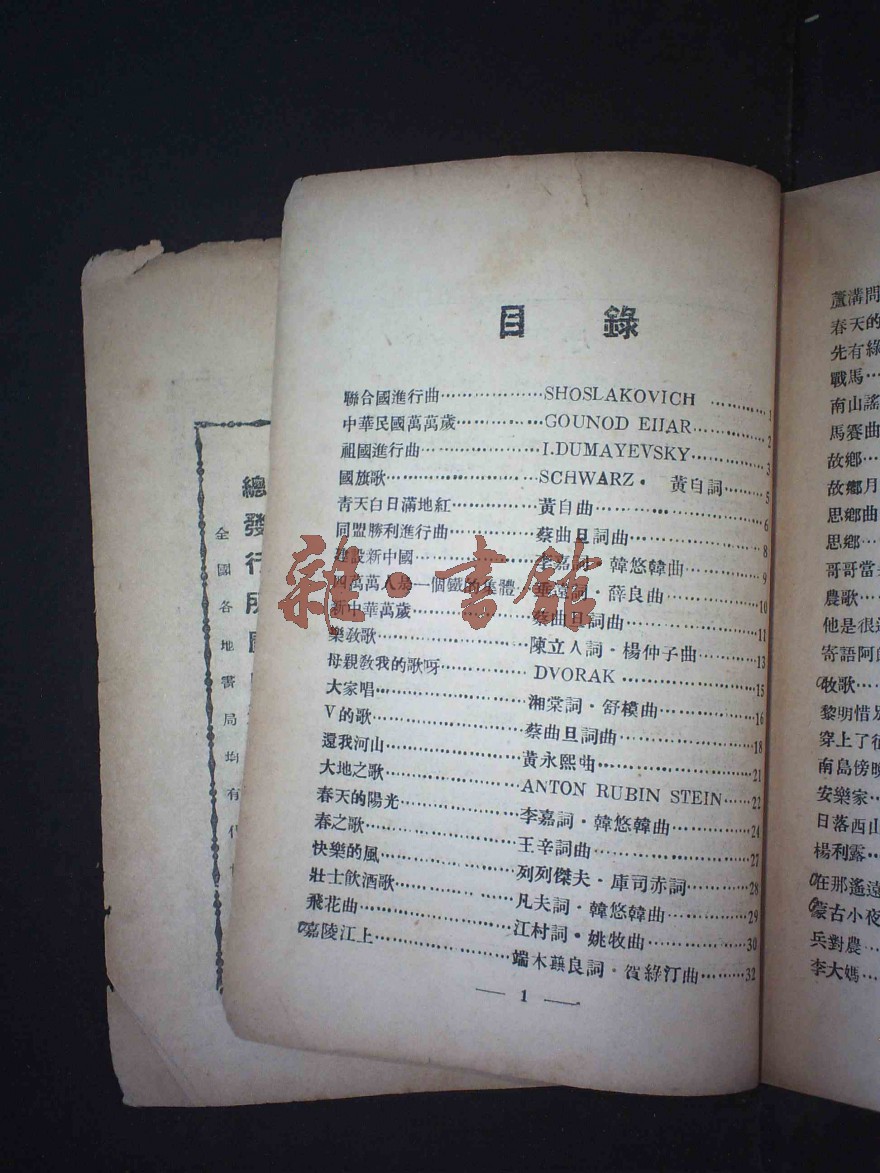 目 錄
聯合國進行曲………………SHOSLAKOVICH …………1
中華民國萬萬歲………………GOUNOD EIIAR…………2
祖國進行曲………………I.DUMAYEVSKY…………3
國旗歌………………SCHWARZ· 黃自詞………5
青天白日滿地紅………………黃自曲………………6
同盟勝利進行曲………………蔡曲旦詞曲………………8
建設新中國………………李嘉詞·韓悠韓曲…………9
四萬萬人是一個鐵的集體…詞·薛良曲…………10
新中華萬歲………………蔡曲旦詞曲………………11
樂敎歌………………陳立人詞·楊仲子曲………13
母親敎我的歌呀………………DVORAK………………15
大家唱………………湘棠詞·舒模曲…………16
V的歌………………蔡曲旦詞曲………………18
還我河山………………黃永熙曲………………21
大地之歌………………ANTON RUBIN STEIN……22
春天的陽光………………李嘉詞·韓悠韓曲…………24
春之歌………………王辛詞曲………………27
快樂的風………………列列傑夫·庫司赤詞………28
壯士飲酒歌………………凡夫詞·韓悠韓曲…………29
飛花曲………………江村詞·姚牧曲…………30
嘉陵江上………………端木蕻良詞·賀綠汀曲………32
— 1 —
總發行所國
全國各地書局均有代
蘆溝問
春天的
先有綠
戰馬…
南山謠
馬賽曲
故鄉…
故鄉月
思鄉曲
思鄉…
哥哥當
農歌…
他是很
寄語阿
牧歌…
黎明惜別
穿上了
南島傍晚
安樂家…
日落西山
楊利露…
在那遙遠
蒙古小夜
兵對農…
李大媽…
雜·書館